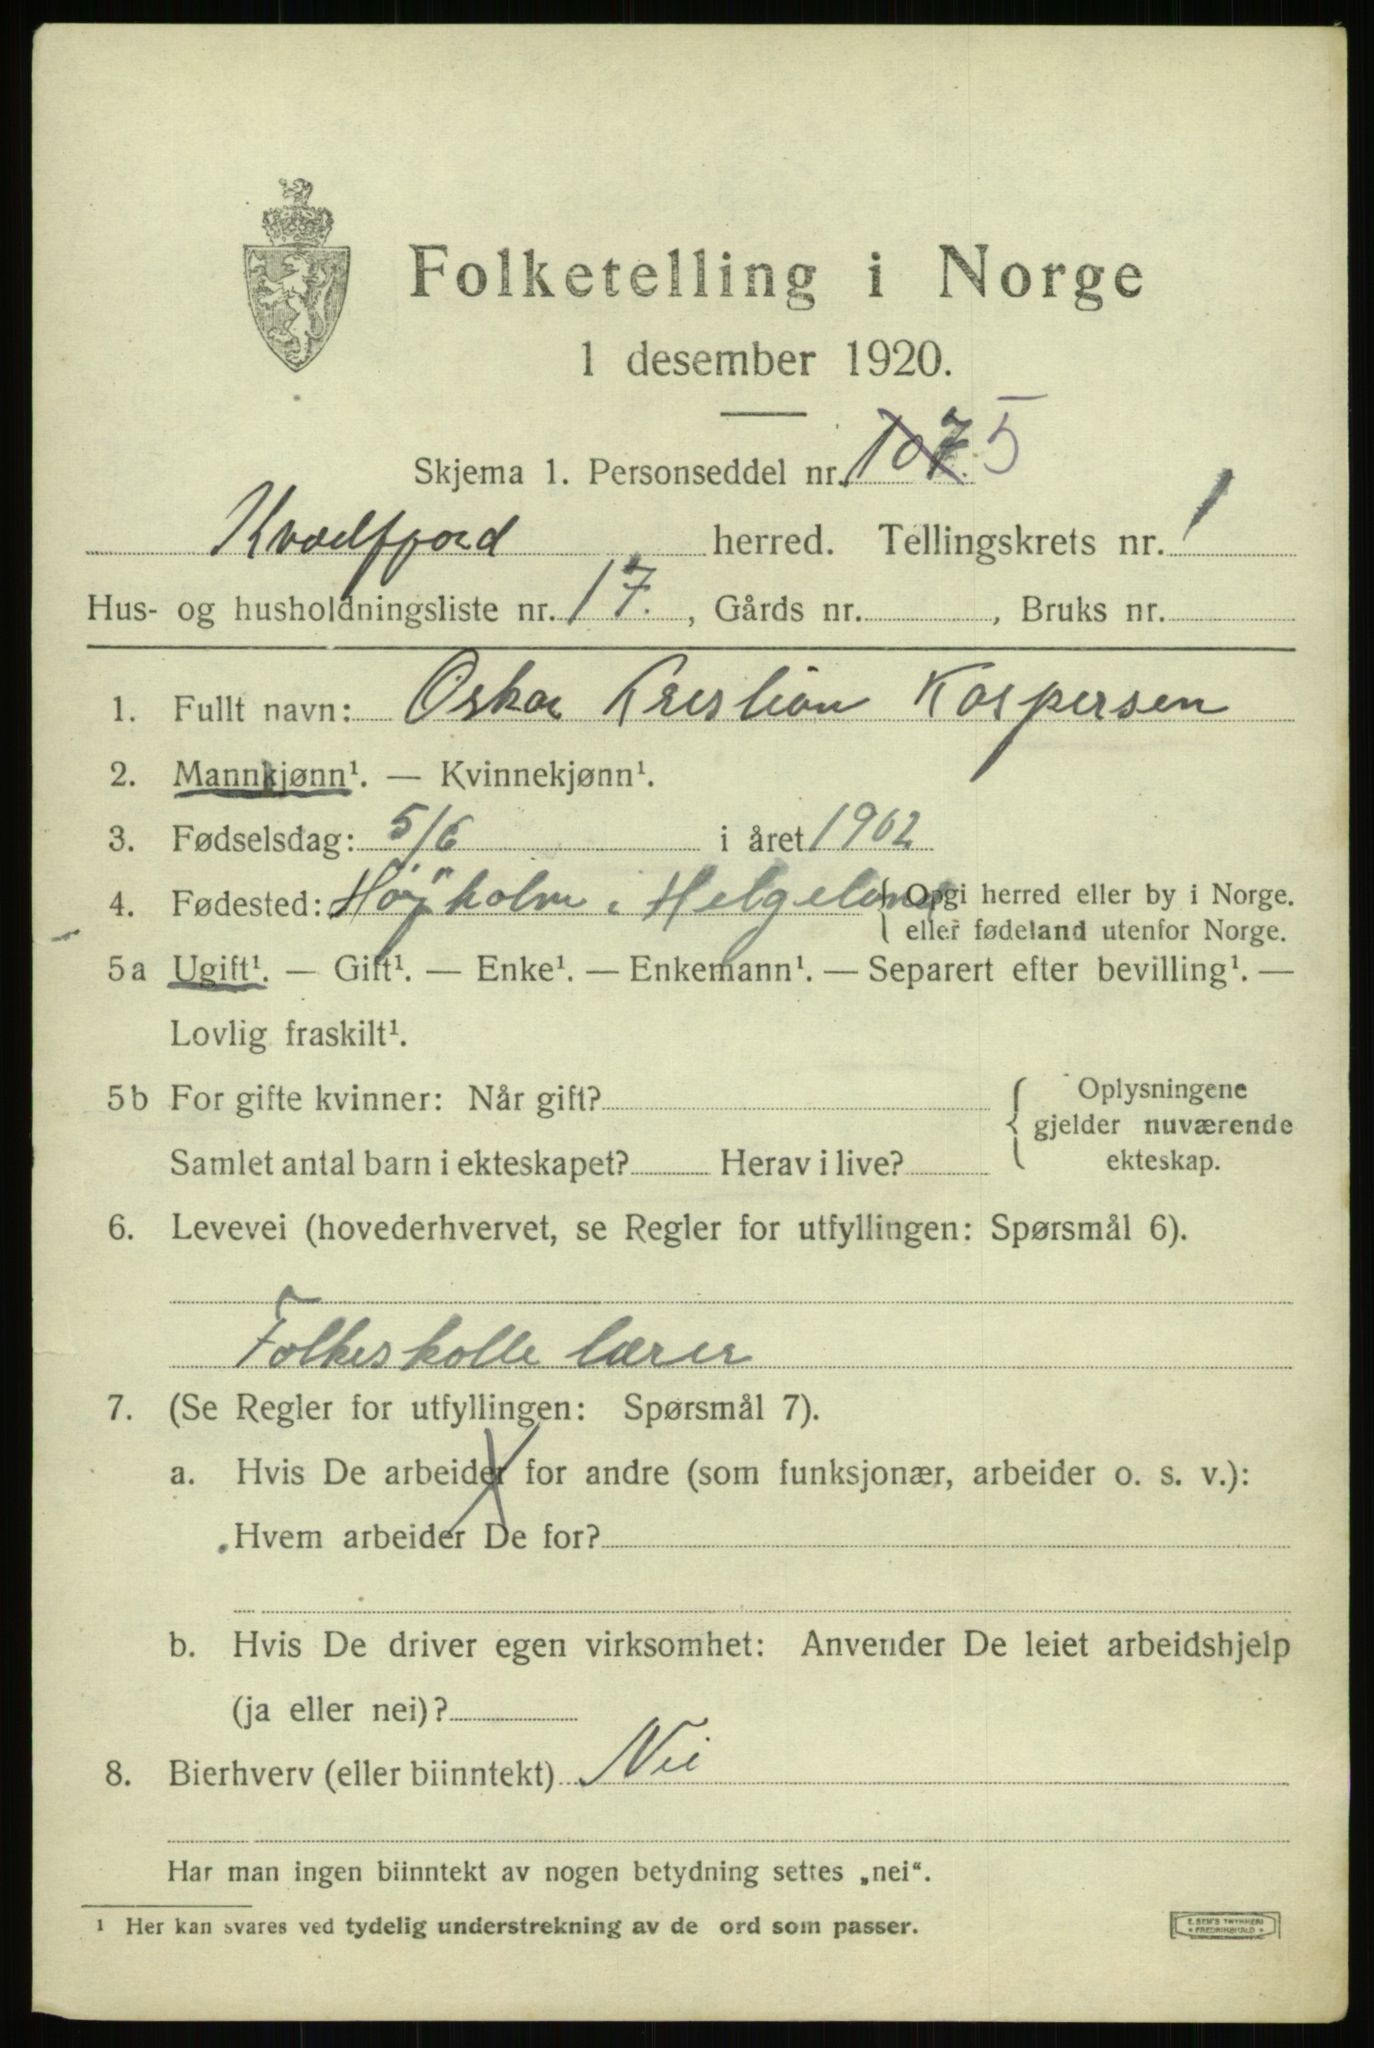 Folketelling i Norge
1 desember 1920.
Skjema 1. Personseddel nr. 107 5
Kvædfjord herred. Tellingskrets nr. 1
Hus- og husholdningsliste nr. 17. , Gårds nr. , Bruks nr.
1. Fullt navn: Oskar Kristian Kaspersen
2. Mannkjønn¹. — Kvinnekjønn¹.
3. Fødselsdag: 5/6 i året 1902
4. Fødested: Højholm i Helgeland { Opgi herred eller by i Norge.
eller fødeland utenfor Norge.
5a Ugift¹. — Gift¹. — Enke¹. — Enkemann¹. — Separert efter bevilling¹. —
Lovlig fraskilt¹.
5b For gifte kvinner: Når gift? { Oplysningene
gjelder nuværende
Samlet antal barn i ekteskapet? Herav i live? ekteskap.
6. Levevei (hovederhvervet, se Regler for utfyllingen: Spørsmål 6).
Folkeskolle lærer
7. (Se Regler for utfyllingen: Spørsmål 7).
a. Hvis De arbeider for andre (som funksjonær, arbeider o. s. v.):
Hvem arbeider De for?
b. Hvis De driver egen virksomhet: Anvender De leiet arbeidshjelp
(ja eller nei)?
8. Bierhverv (eller biinntekt) Nei
Har man ingen biinntekt av nogen betydning settes „nei“.
¹ Her kan svares ved tydelig understrekning av de ord som passer.
E. SEM'S TRYKKERI
* FREDRIKSHALD *